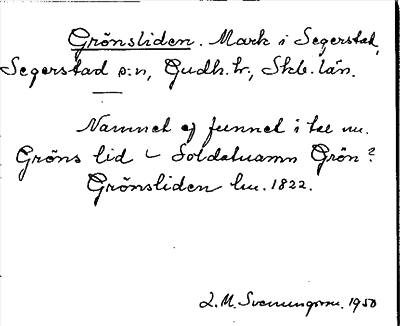 Grönsliden. Mark i Segerstad,
Segerstad s:n, Gudh. hr., Skb. län.
Namnet ej funnet i
Gröns lid Soldatnamn Grön?
Grönsliden hu. 1822.
L. M. Svenungsson. 1950